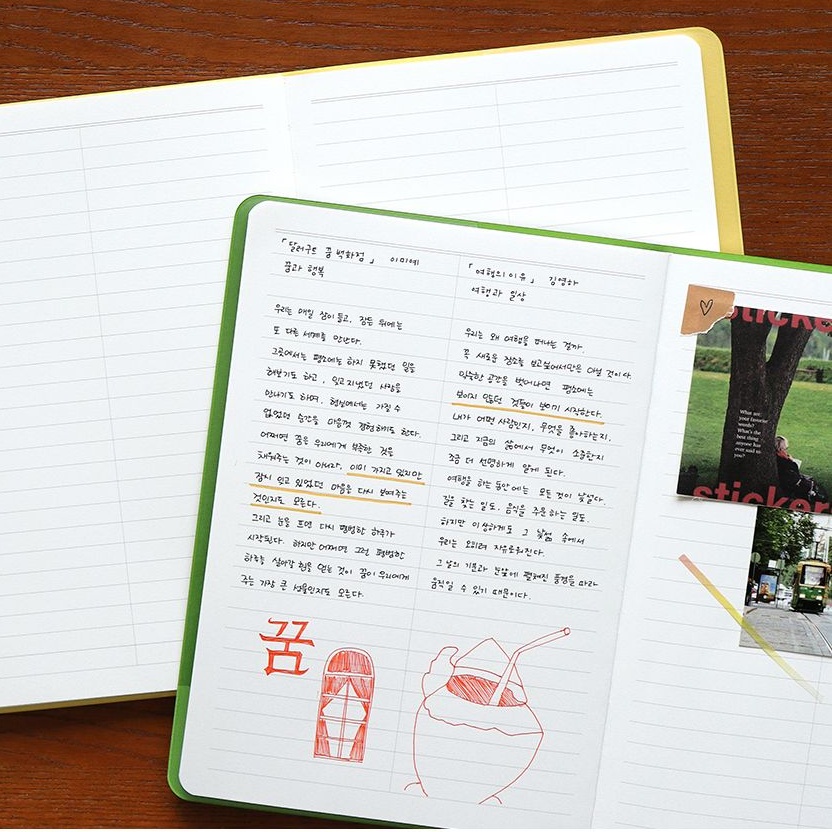 「달러구트 꿈 백화점」 이미예
꿈과 행복
우리는 매일 잠이 들고, 잠든 뒤에는
또 다른 세계를 만난다.
그곳에서는 평소에는 하지 못했던 일을
해보기도 하고, 잊고지냈던 사람을
만나기도 하며, 현실에서는 가질 수
없었던 순간을 마음껏 경험하기도 한다.
어쩌면 꿈은 우리에게 부족한 것을
채워주는 것이 아니라, 이미 가지고 있지만
잠시 잊고 있었던 마음을 다시 보여주는
것인지도 모른다.
그리고 눈을 뜨면 다시 평범한 하루가
시작된다. 하지만 어쩌면 그런 평범한
하루를 살아갈 힘을 얻는 것이 꿈이 우리에게
주는 가장 큰 선물인지도 모른다.
꿈
「여행의 이유」 김영하
여행과 일상
우리는 왜 여행을 떠나는 걸까.
꼭 새로운 장소를 보고싶어서만은 아닐 것이다.
익숙한 공간을 벗어나면 평소에는
보이지 않던 것들이 보이기 시작한다.
내가 어떤 사람인지, 무엇을 좋아하는지,
그리고 지금의 삶에서 무엇이 소중한지
조금 더 선명하게 알게 된다.
여행을 하는 동안에는 모든 것이 낯설다.
길을 찾는 일도, 음식을 주문하는 일도.
하지만 이상하게도 그 낯섦 속에서
우리는 오히려 자유로워진다.
그 날의 기분과 눈앞에 펼쳐진 풍경을 따라
움직일 수 있기 때문이다.
What are
your favorite
words?
What's the
best thing
anyone has
ever said to
you?
sticker